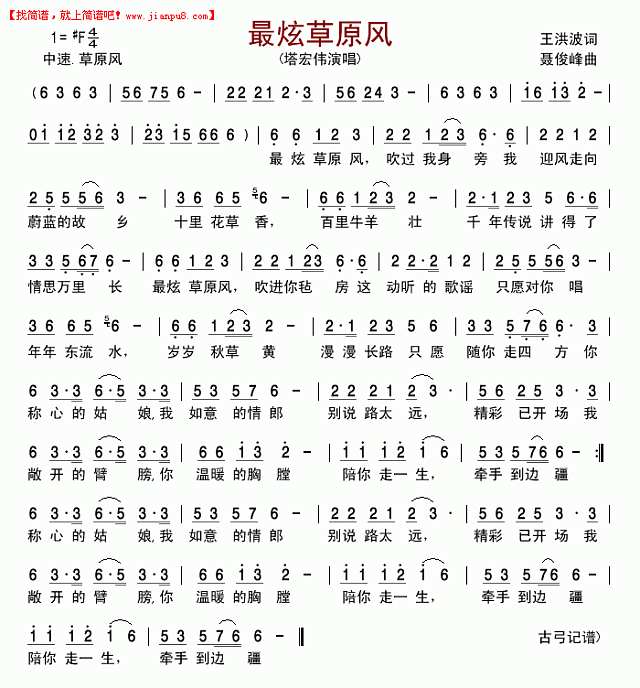 【找简谱，就上简谱吧！www.jianpu8.com】
最炫草原风
1= #F 4/4
王洪波词
中速.草原风
(塔宏伟演唱)
聂俊峰曲
(6 3 6 3 | 5 1 6 3 - | 5 6 2 4 3 - | 5 6 2 4 3 - | 6 3 6 3 | 1 6 1 3 -
0 1 1 2 3 2 - | 2 3 1 5 6 6 - ) | 6 6 1 2 3 | 2 2 1 2 3 | 6 · 6 - | 2 2 1 2
最炫草原风，吹过我身旁我迎风走向
2 5 5 5 6 3 - | 3 6 6 5 6 - | 2 2 1 2 2 - | 2 · 1 2 3 5 6 · 6
蔚蓝的故乡十里花草香，百里牛羊壮千年传说讲得了
3 3 5 6 7 6 - | 6 6 1 2 3 | 2 2 1 2 3 6 6 | 2 2 · 2 1 2 | 2 5 5 5 6 3 -
情思万里长最炫草原风，吹进你毡房这动听的歌谣只愿对你唱
3 6 6 5 6 - | 6 6 1 2 3 2 - | 2 · 1 2 3 5 6 | 3 3 5 7 6 6
年年东流水，岁岁秋草黄漫漫长路只愿随你走四方你
6 3 · 3 6 · 5 3 · 3 | 5 3 5 7 6 - | 2 2 2 1 2 - | 5 3 5 7 6 6
称心的姑娘,我如意的情郎别说路太远，精彩已开场我
6 3 · 3 6 · 5 3 · 3 | 6 6 1 3 2 - | 1 1 1 2 1 6 | 5 3 5 7 6 6 - :‖
敞开的臂膀,你温暖的胸膛陪你走一生，牵手到边疆
6 3 · 3 6 · 5 3 · 3 | 5 3 5 7 6 - | 2 2 2 1 2 - | 5 3 5 7 6 6
称心的姑娘,我如意的情郎别说路太远，精彩已开场我
6 3 · 3 6 · 5 3 · 3 | 6 6 1 3 2 - | 1 1 1 2 1 6 | 5 3 5 7 6 6 -
敞开的臂膀,你温暖的胸膛陪你走一生，牵手到边疆
1 1 1 2 1 6 | 5 3 5 7 6 6 - ‖
古弓记谱)
陪你走一生，牵手到边疆